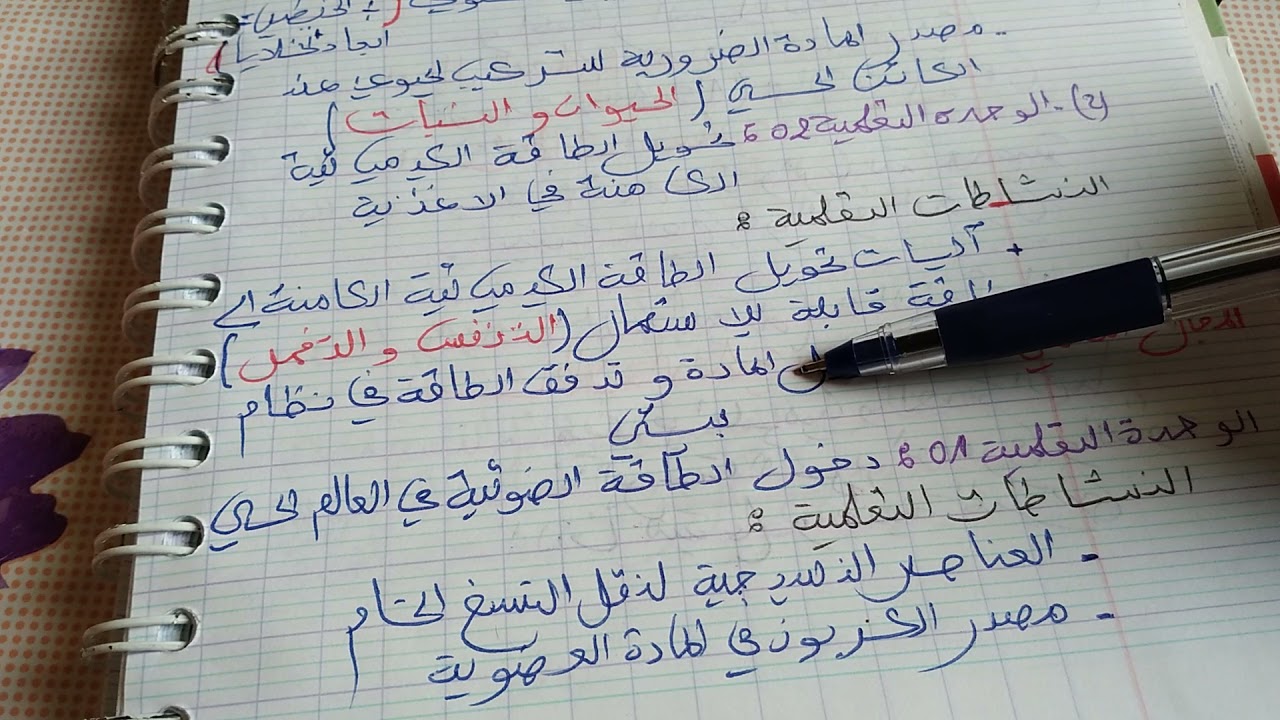 إيجاد الخلايا)
- مصدر المادة الضرورية للتركيب الحيوي عند
الكائن الحي (الحيوان و النبات)
2)- الوحدة التعلمية 02: تحويل الطاقة الكيميائية
الكامنة في الاغذية
النشاطات التعلمية:
+ آليات تحويل الطاقة الكيميائية الكامنة إلى
طاقة قابلة للاستعمال (التنفس و التخمر)
المادة و تدفق الطاقة في نظام
بيئي
المجال
الوحدة التعلمية 01: دخول الطاقة الضوئية في العالم الحي
النشاطات التعلمية:
- العناصر النسيجية لنقل النسغ الخام
- مصدر الكربون في المادة العضوية